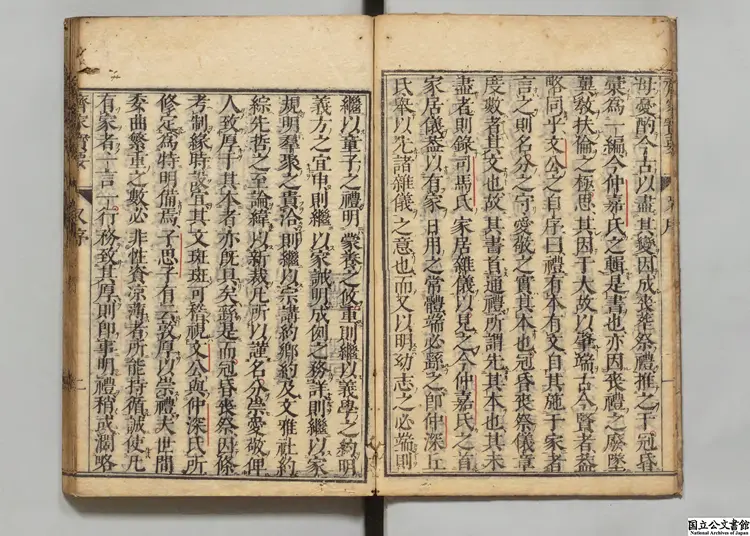 毋憂酌今古以盡其變因成喪葬祭禮推之于冠昏
彙為一編今仲嘉氏之輯是書也亦因喪禮之廢墜
翼敎扶倫之極思其因于大故以肇端古今賢者盖
略同乎文公之自序曰禮有本有文自其施于家者
言之則名分之守愛敬之實其本也冠昏喪祭儀章
度數者其文也故其書首通禮所謂先其本也其未
盡者則錄司馬氏家居雜儀以見之今仲嘉氏之首
家居儀葢以有家日用之常體端必繇之即仲深丘
氏舉以先諸雜儀之意也而又以明幼志之必端則
繼以童子之禮明蒙養之攸重則繼以義學之約明
義方之宜申則繼以家誡明成例之務詳則繼以家
規明羣聚之貴洽則繼以宗講約鄉約及文雅社約
綜先哲之至論緯以新裁凡所以謹名分崇愛敬俾
人致厚于其本者亦旣具矣繇是而冠昏喪祭因條
考制緣時設宜其文斑斑可稽視文公與仲深氏所
修定為特明備焉子思子有云敦厚以崇禮夫世間
委曲繁重之數必非性資涼薄者所能持循誠使凡
有家者一言一行務致其厚則即事明禮稍或闊略
齊家寶要 序 二
国立公文書館
National Archives of Japan